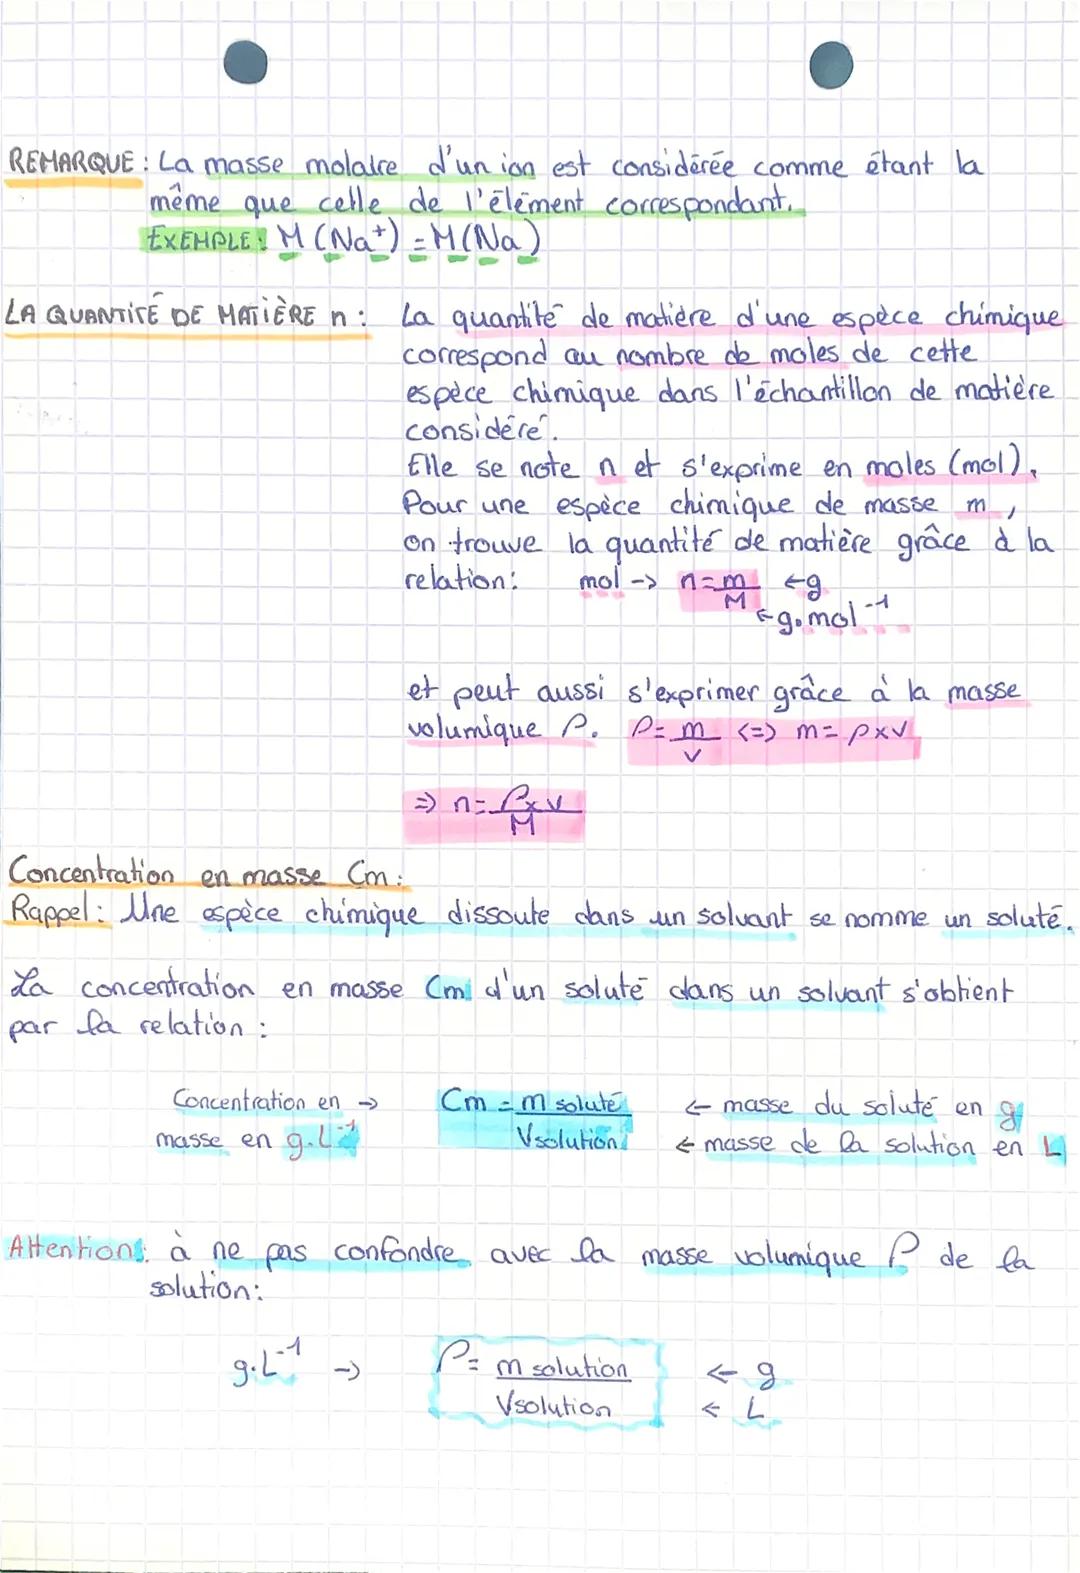 REMARQUE : La masse molaire d'un ion est considérée comme étant la
même que celle de l'élément correspondant.
EXEMPLE : M (Na⁺) = M(Na)
LA QUANTITÉ DE MATIÈRE n : La quantité de matière d'une espèce chimique
correspond au nombre de moles de cette
espèce chimique dans l'échantillon de matière
considéré.
Elle se note n et s'exprime en moles (mol).
Pour une espèce chimique de masse m,
on trouve la quantité de matière grâce à la
relation : mol -> n = m ← g
M ← g.mol⁻¹
et peut aussi s'exprimer grâce à la masse
volumique ρ. ρ = m <=> m = ρ x v
v
=> n = ρ x v
M
Concentration en masse Cm :
Rappel : Une espèce chimique dissoute dans un solvant se nomme un soluté.
La concentration en masse Cm d'un soluté dans un solvant s'obtient
par la relation :
Concentration en → Cm = m soluté ← masse du soluté en g
masse en g.L⁻¹ Vsolution ← masse de la solution en L
Attention : à ne pas confondre avec la masse volumique ρ de la
solution :
g.L⁻¹ → ρ = m solution ← g
Vsolution ← L